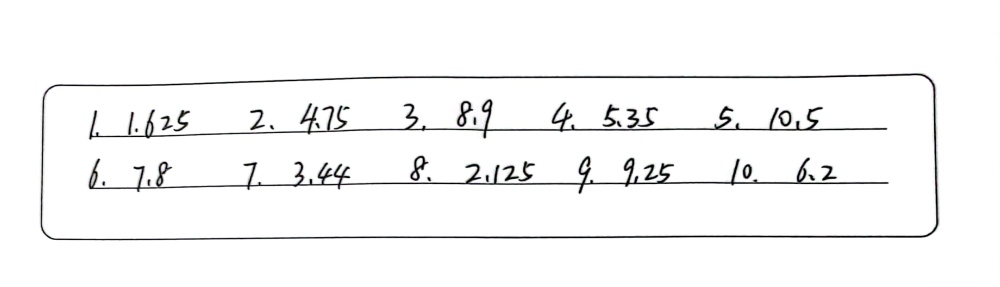 1. 1.625 2. 4.75 3. 8.9 4. 5.35 5. 10.5
6. 7.8 7. 3.44 8. 2.125 9. 9.25 10. 6.2